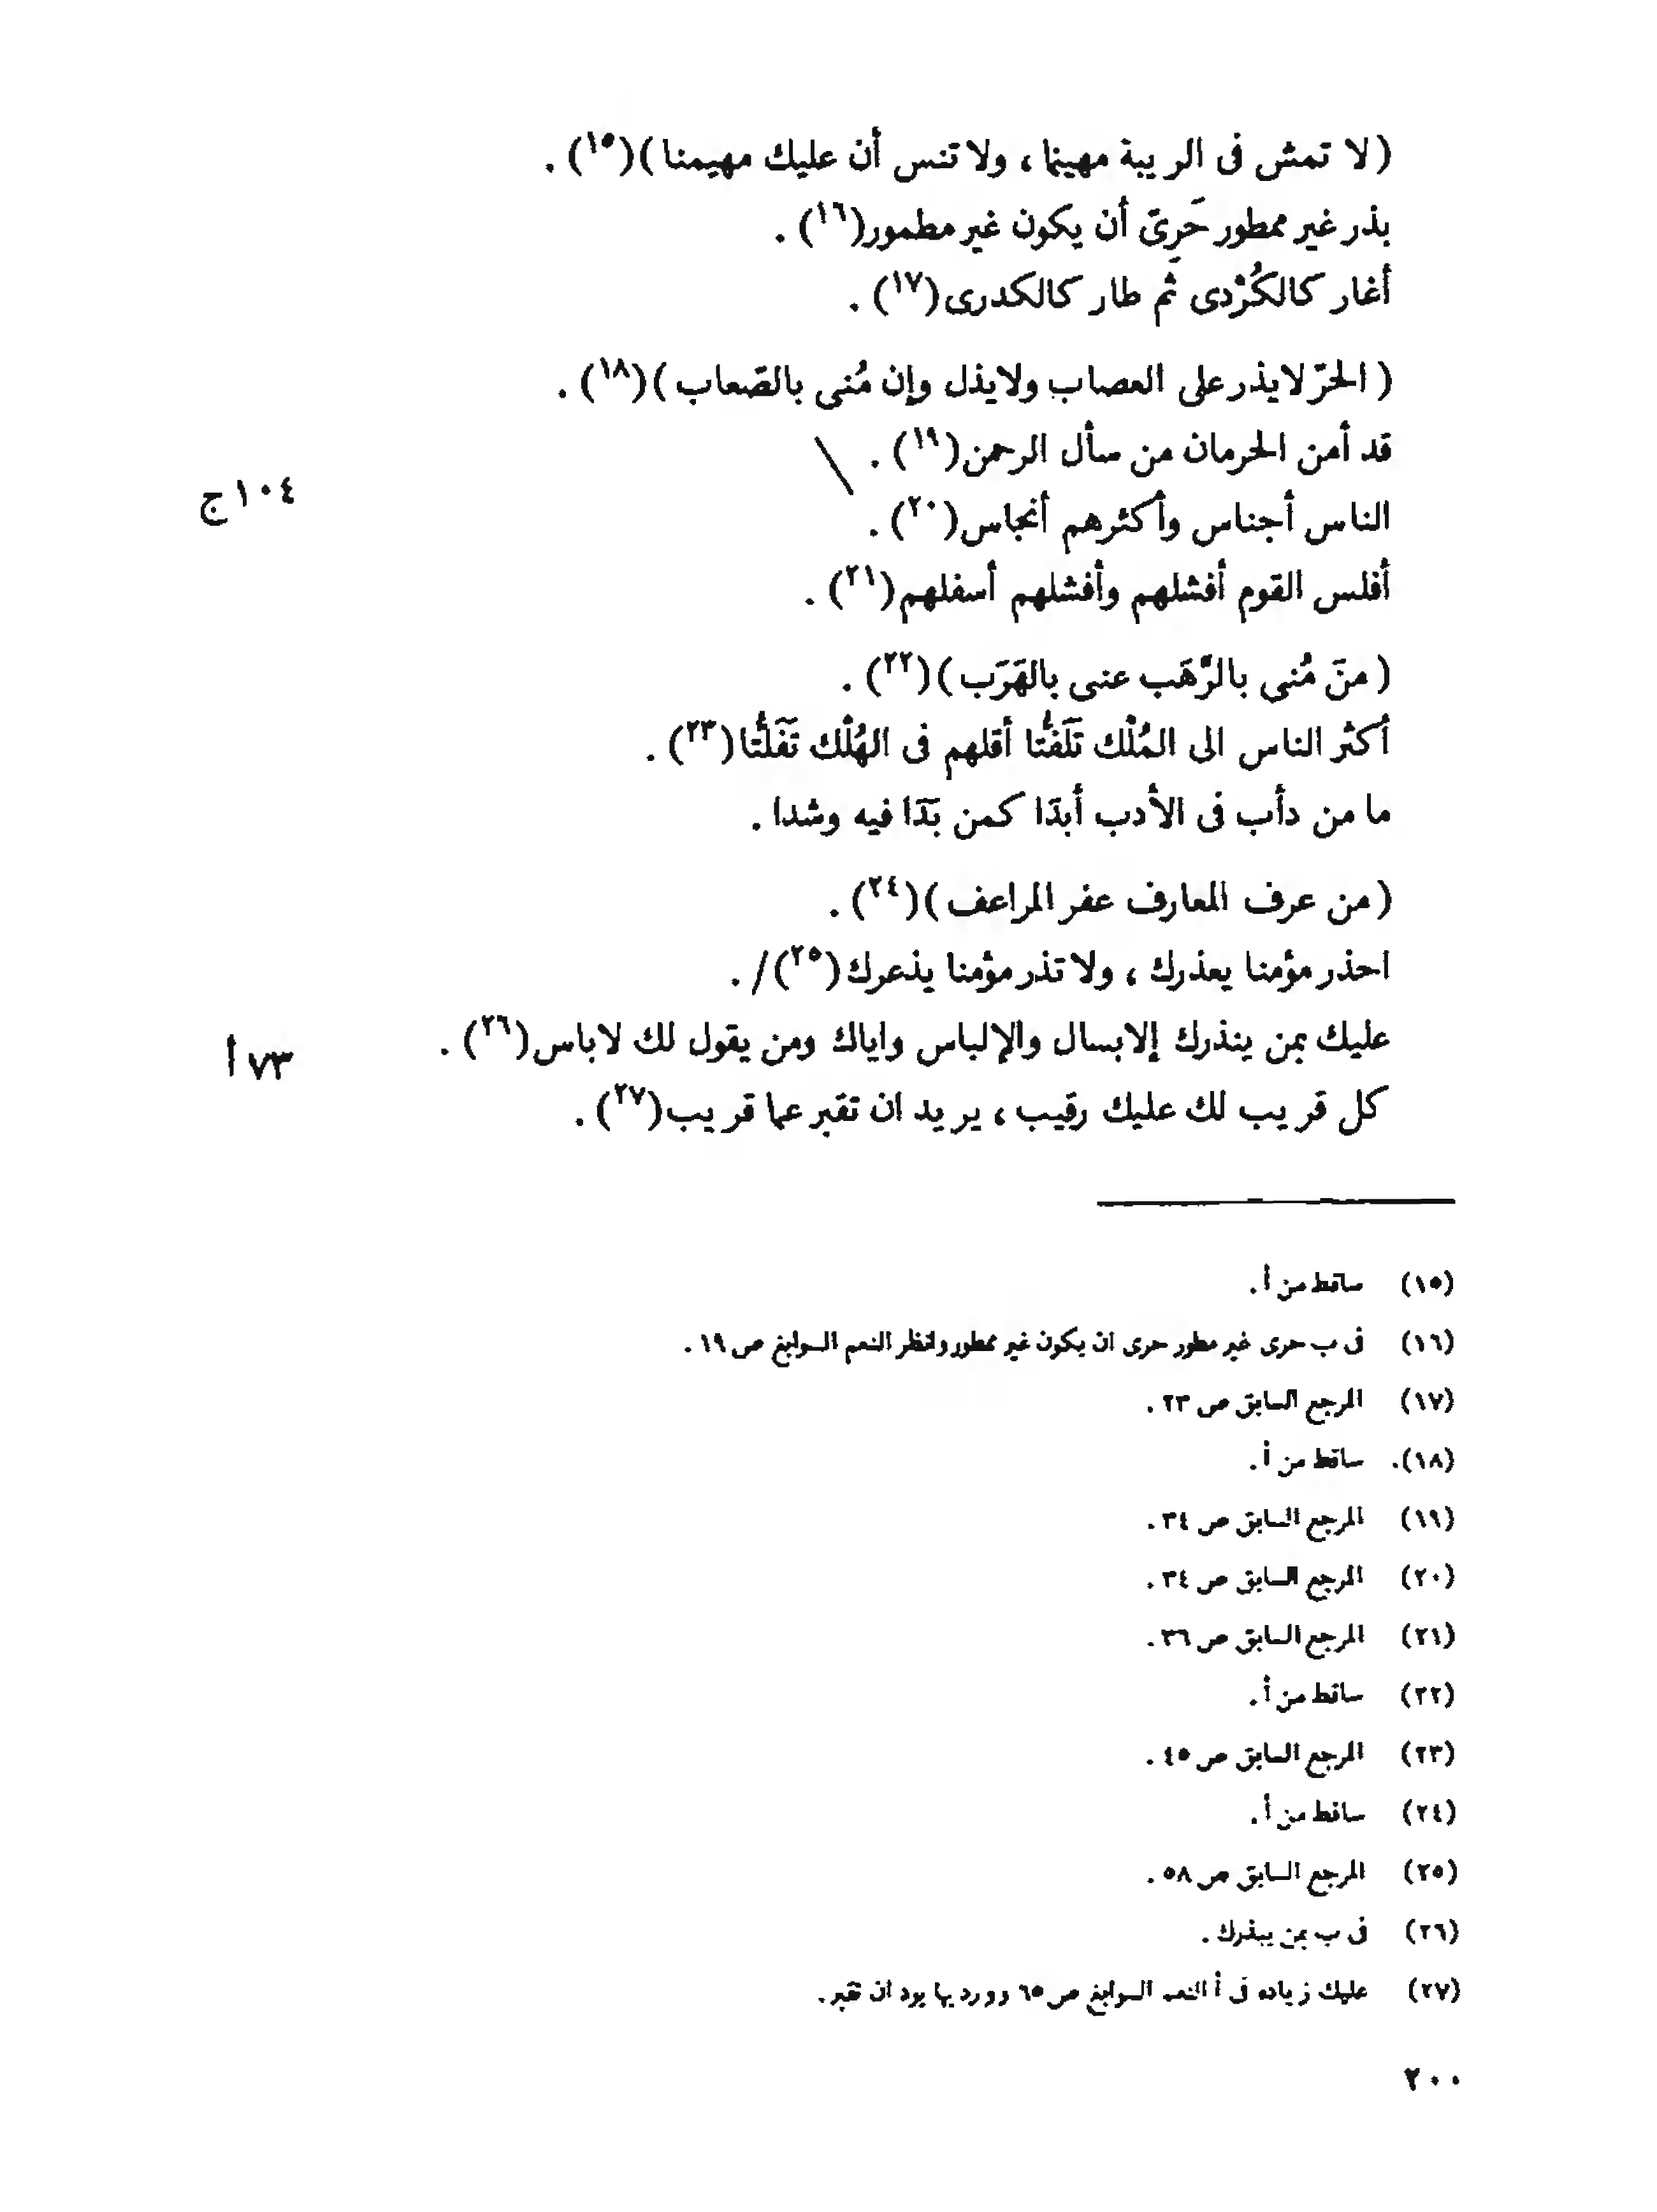 (لا تمش فى الريبة مهينما ، ولا تنس أن عليك مهيمنا)(١٥) .
بذر غير ممطور حَرِىّ أن يكون غير مطمور(١٦) .
أغار كالكُرْدى ثم طار كالكدرى(١٧) .
(الحرّ لايذر على العصاب ولايذل وإن مُنى بالصّعاب)(١٨) .
قد أمن الحرمان من سأل الرحمن(١٩) . \
الناس أجناس وأكثرهم أنجاس(٢٠) .
١٠٤ ج
أفلس القوم أفشلهم وأفشلهم أسفلهم(٢١) .
(منَ مُنى بالرَّهَب عنى بالهَرَب)(٢٢) .
أكثر الناس الى المُلْك تَلَفُّتا أقلهم فى الهُلْك تَفَلُّتا(٢٣) .
ما من دأب فى الأدب أبدَا كمن بَدَا فيه وشدا .
(من عرف المعارف عفر المراعف)(٢٤) .
احذر مؤمنا يعذرك ، ولا تذر مؤمنا يذعرك(٢٥)/ .
عليك بمن ينذرك إلابسال والإلباس واياك ومن يقول لك لاباس(٢٦) .
٧٣ أ
كل قريب لك عليك رقيب ، يريد ان تقبر عما قريب(٢٧) .
(١٥) ساقط من أ .
(١٦) فى ب حرى غير مطور حرى ان يكون غير ممطور وانظر النعم السوابغ ص ١٩ .
(١٧) المرجع السابق ص ٢٣ .
(١٨). ساقط من أ .
(١٩) المرجع السابق ص ٣٤ .
(٢٠) المرجع السابق ص ٣٤ .
(٢١) المرجع السابق ص ٣٦ .
(٢٢) ساقط من أ .
(٢٣) المرجع السابق ص ٤٥ .
(٢٤) ساقط من أ .
(٢٥) المرجع السابق ص ٥٨ .
(٢٦) فى ب بمن يبذرك .
(٢٧) عليك زياده فى أ النعم السوابغ ص ٦٥ وورد بها يود ان تقبر .
٢٠٠